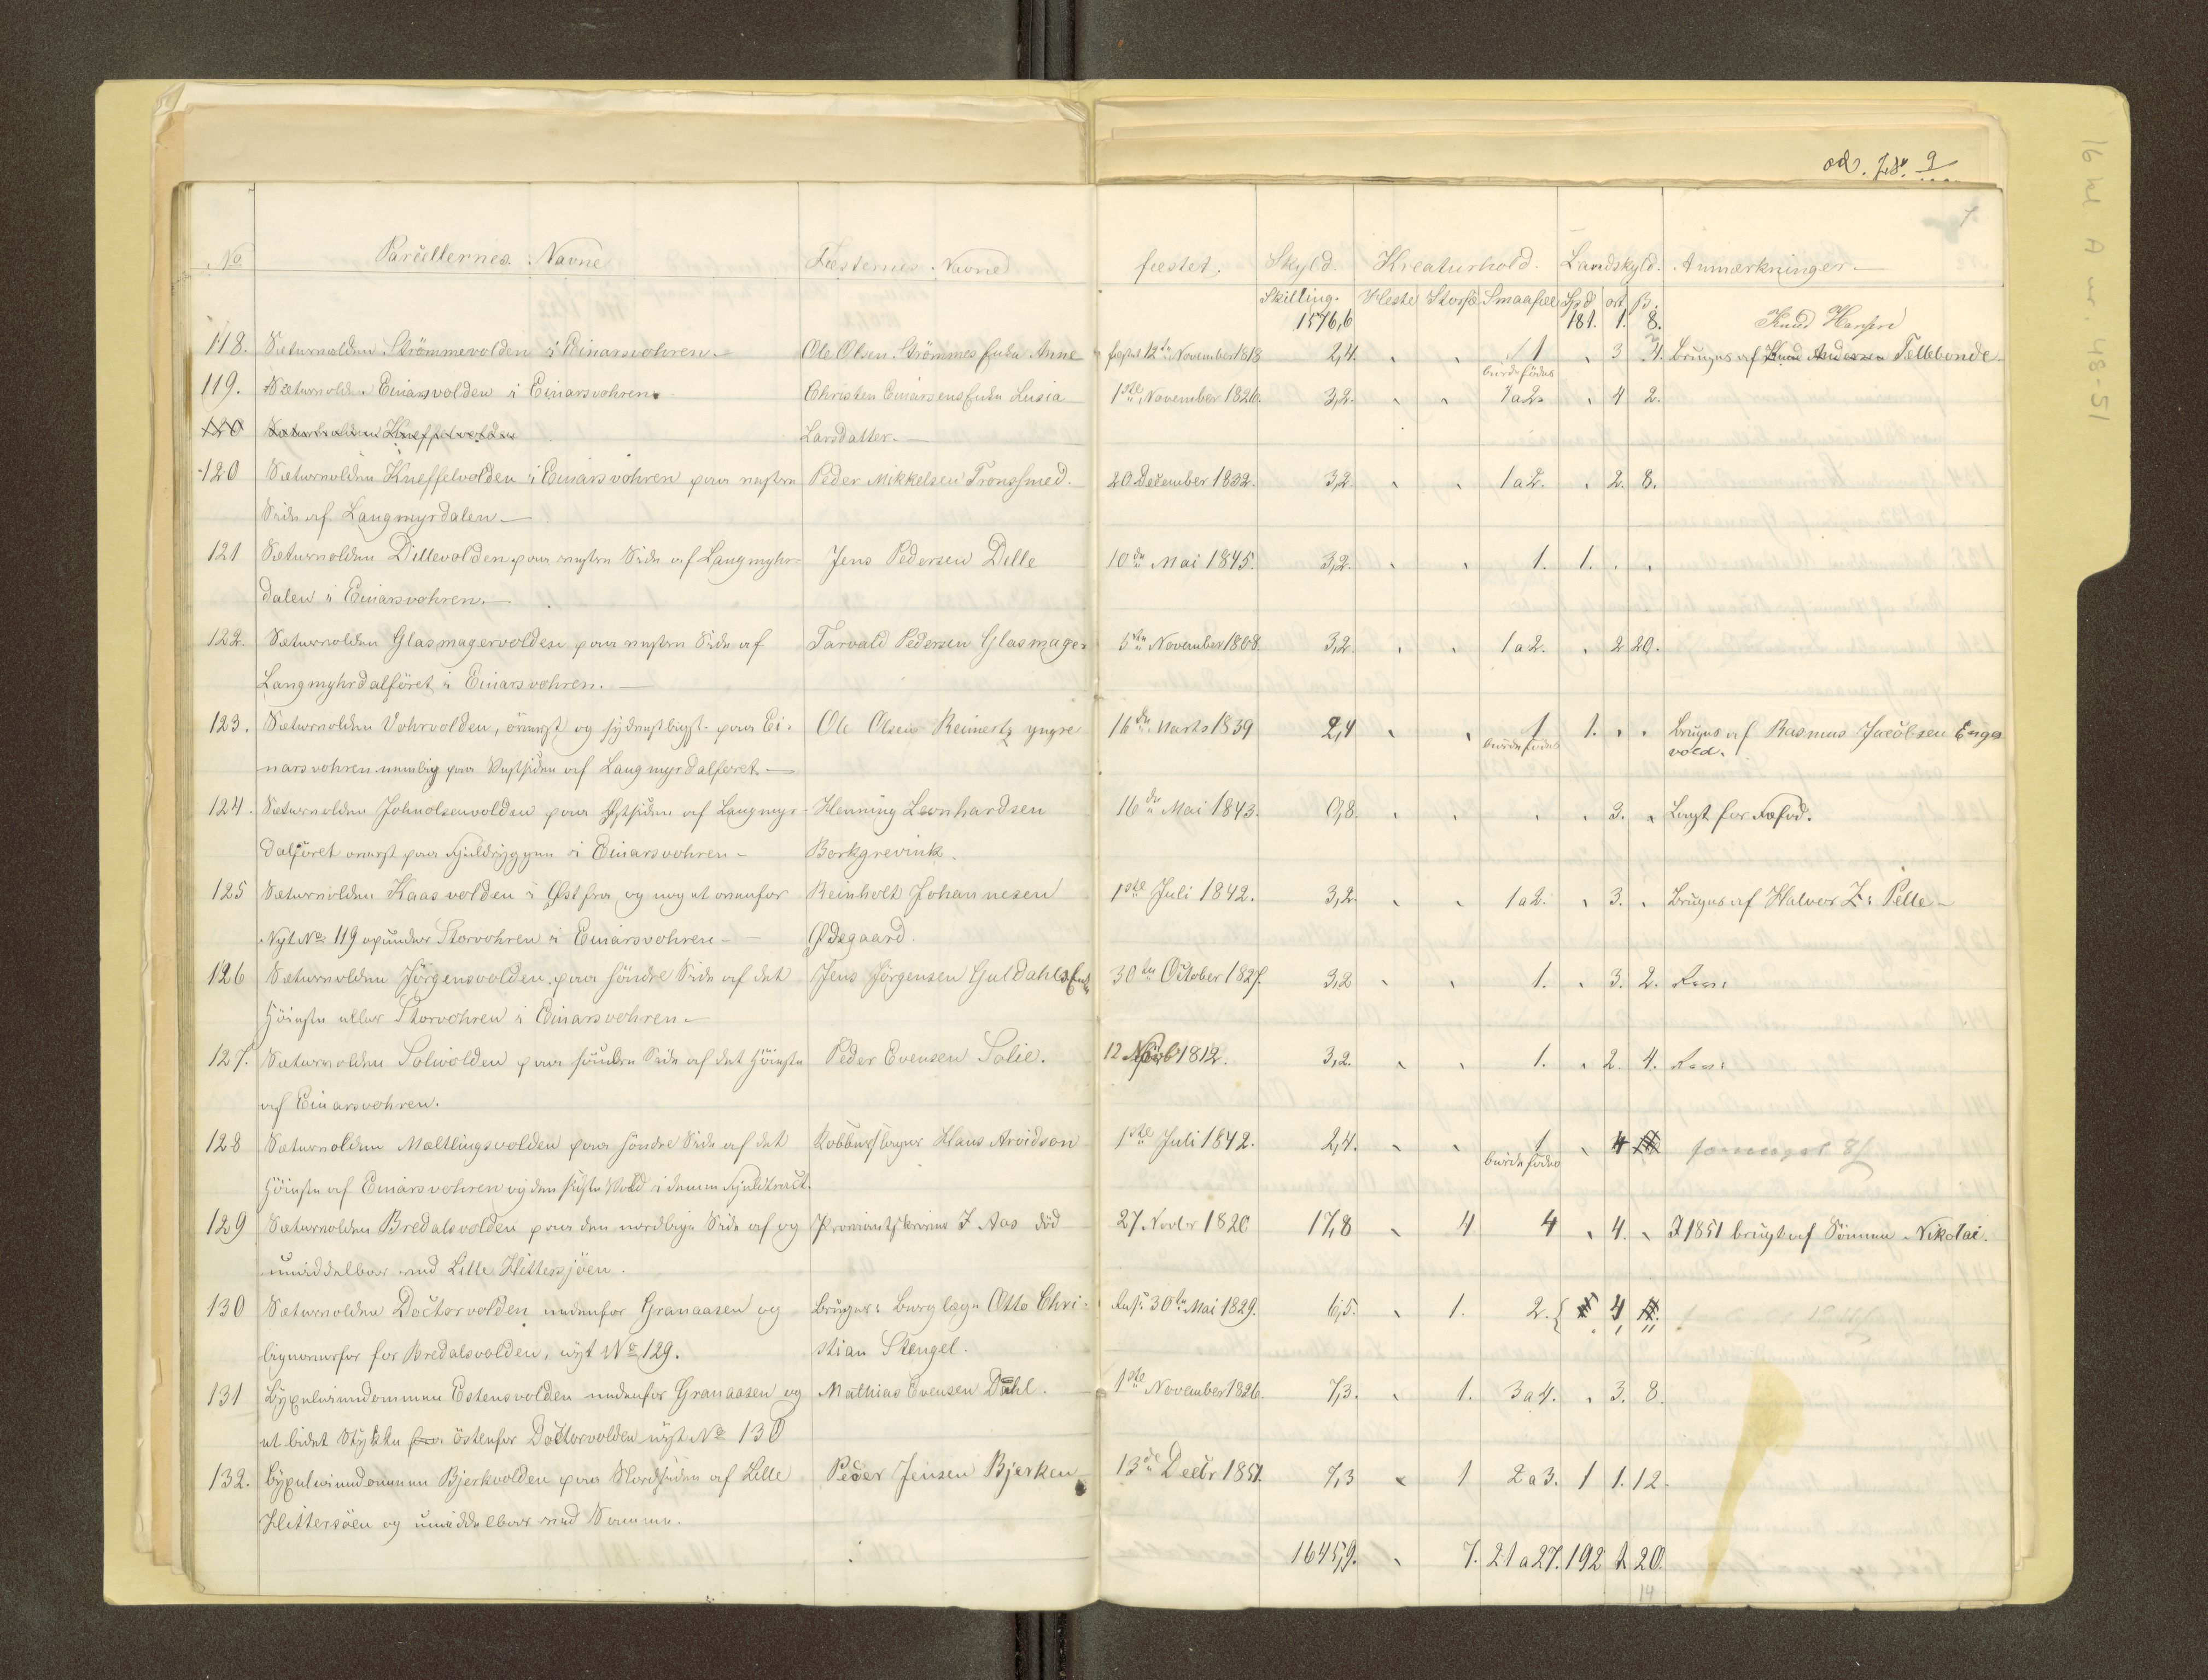 od. 9
7
No Parcellernes Navne Fæsternes Navne fæstet. Skyld. Kreaturhold. Landskyld. Anmærkninger.
Skilling. Heste Storfæ Smaafæe Spd ort ß.
1576,6 181. 1. 8. Knud Hansen
118. Sætervolden Strömmevolden i Einarsvohren. Ole Olsen Strömmes Enke Anne fæstet 12te November 1818 2,4. " " 1 " 3 4. bruges af Knud Andersen Tellebonde.
burde födes
119. Sætervolden Einarsvolden i Einarsvohren. Christen Einarsens Enke Lusia 1ste November 1826. 3,2. " " 1 a 2. " 4 2.
120 Sætervolden Kneffelvolden Larsdatter.
120 Sætervolden Kneffelvolden i Einarsvohren paa vestre Peder Mikkelsen Tronssmed. 20 December 1832. 3,2. " " 1 a 2. " 2. 8.
Side af Langmyrdalen.
121 Sætervolden Dillevolden paa vestre Side af Langmyhr- Jens Pedersen Dille 10de Mai 1845. 3,2. " " 1. 1. " "
dalen i Einarsvohren.
122. Sætervolden Glasmagervolden paa vestre Side af Tarvald Pedersen Glasmager 5te November 1808. 3,2. " " 1 a 2. " 2 20.
Langmyhrdalföret i Einarsvohren.
123. Sætervolden Vohrvolden, överst og sydvestligst paa Ei- Ole Olsen Reinertz yngre 16de Marts 1839 2,4 " " 1 1. " " Bruges af Rasmus Jacobsen Enge
burde födes vold.
narsvohren nemlig paa Vestsiden af Langmyrdalföret
124. Sætervolden Johnolsenvolden paa Østsiden af Langmyr- Henning Leonhardsen 16de Mai 1843. 0,8. " " " " 3. " Lagt for Fæfod.
dalföret överst paa Fjeldryggen i Einarsvohren Borkgrevink.
125 Sætervolden Kaasvolden i Øst fra og noget ovenfor Reinholt Johannesen 1ste Juli 1842. 3,2. " " 1 a 2. " 3. " Bruges af Halvor Z: Pelle
Nyt No 119 opunder Storvohren i Einarsvohren Ødegaard.
126 Sætervolden Jörgensvolden paa söndre Side af det Jens Jörgensen Guldahls Enke 30te October 1827. 3,2 " " 1. " 3. 2.
Höieste eller Storvohren i Einarsvohren
127. Sætervolden Solivolden paa söndre Side af det Höieste Peder Evensen Solie. 12 1812. 3,2. " " 1. " 2. 4.
af Einarsvohren.
128 Sætervolden Mælllingsvolden paa söndre Side af det Kobberslager Hans Arvidson 1ste Juli 1842. 2,4. " " 1 " 4
burde födes
Höieste af Einarsvohren og den sidste Vold i denne Fjeldtract.
129 Sætervolden Bredalsvolden paa den nordlige Side af og Proviantskriver J Aas död 27 Novbr 1820 17,8 " 4 4 " 4. " I 1851 brugt af Sönnen Nikolai.
umiddelbar ved Lille Hittersjöen.
130 Sætervolden Doctorvolden nedenfor Granaasen og Bruger: Berglæge Otto Chri- 30te Mai 1829. 6,5. " 1. 2. 4
ligeoverfor for Bredalsvolden, nyt No 129. stian Stengel.
131 Bÿxeleiendommen Estensvolden nedenfor Granaasen og Mathias Evensen Dahl. 1ste November 1826. 7,3. " 1. 3 a 4. " 3. 8.
et lidet Stykke östenfor Doctorvolden nyt No 130
132. Bÿxeleiendommen Bjerkvolden paa Nordsiden af Lille Peder Jensen Bjerken 13de Decbr 1851. 7,3 " 1 2 a 3. 1 1. 12.
Hittersöen og umiddelbar ved Samme.
1645,9. " 7. 21 a 27. 192 2 20.
14
16 kl A nr. 48-51